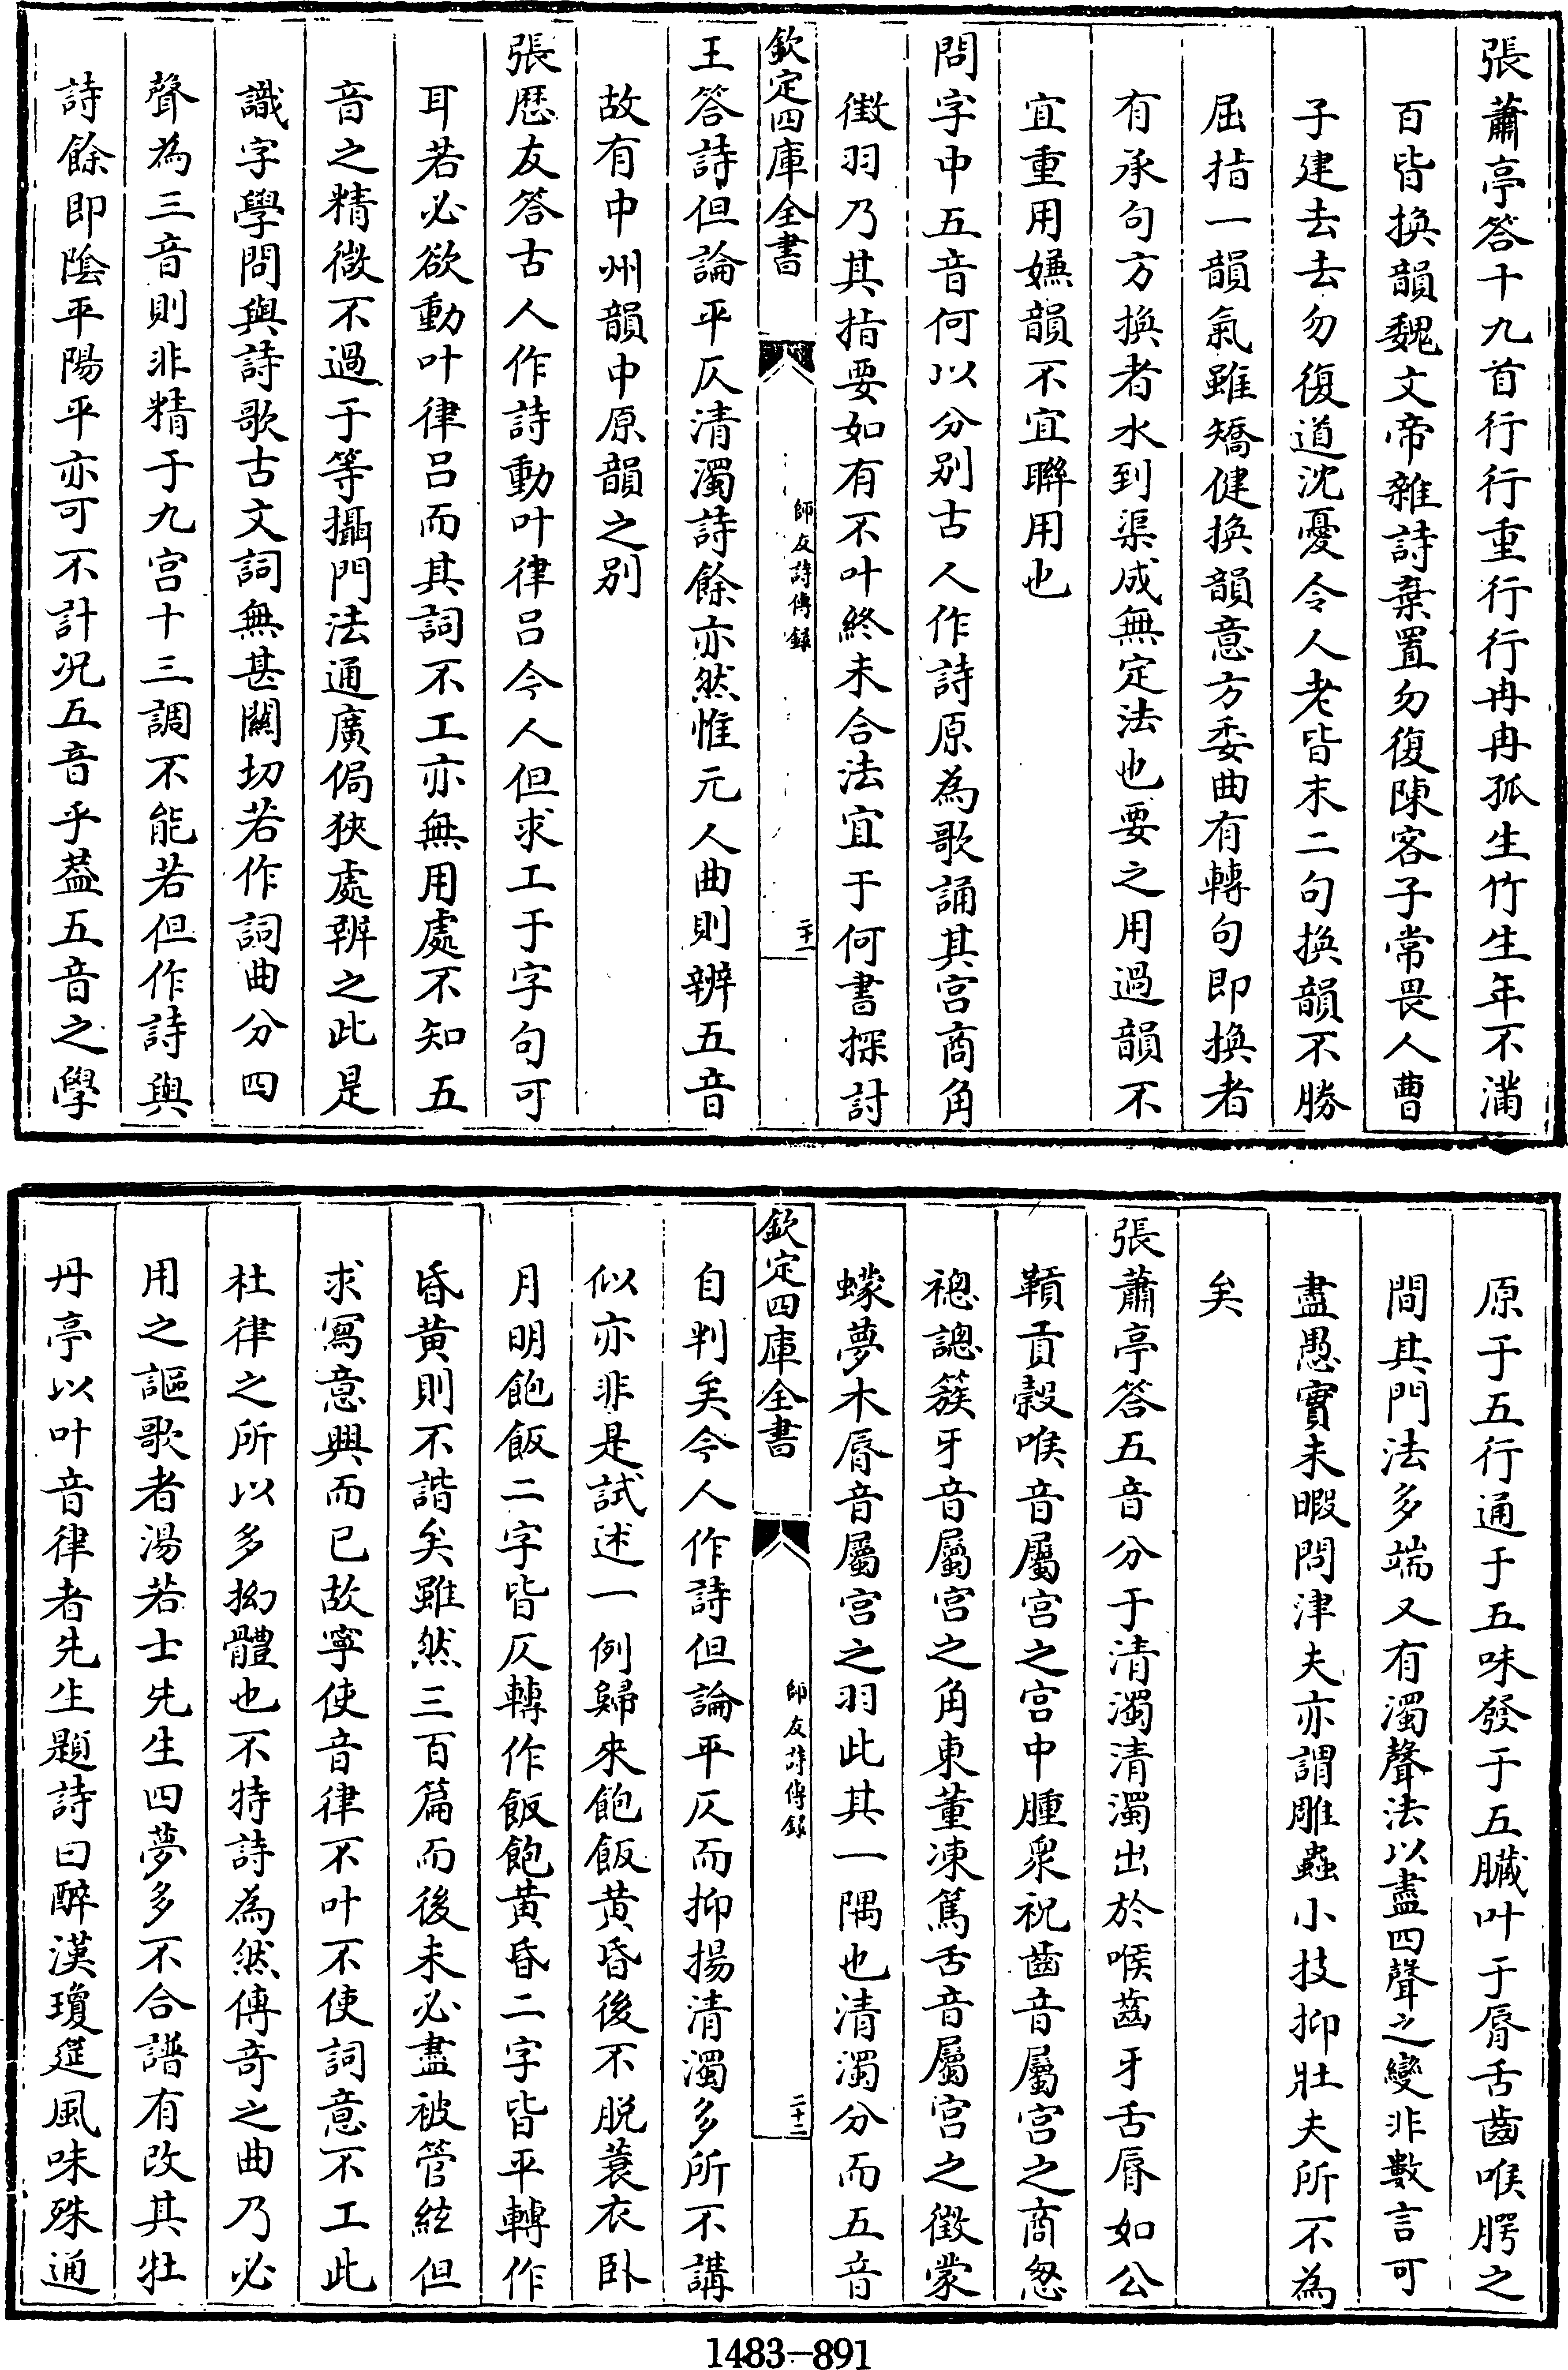 張蕭亭答十九首行行重行行冉冉孤生竹生年不滿
百皆換韻魏文帝雜詩棄置勿復陳客子常畏人曹
子建去去勿復道沈憂令人老皆末二句換韻不勝
屈指一韻氣雖矯健換韻意方委曲有轉句即換者
有承句方換者水到渠成無定法也要之用過韻不
宜重用嫌韻不宜聯用也
問字中五音何以分別古人作詩原為歌誦其宫商角
徴羽乃其指要如有不叶終未合法宜于何書探討
欽定四庫全書
師友詩傳録
二十一
王答詩但論平仄清濁詩餘亦然惟元人曲則辨五音
故有中州韻中原韻之別
張歴友答古人作詩動叶律吕今人但求工于字句可
耳若必欲動叶律吕而其詞不工亦無用處不知五
音之精微不過于等攝門法通廣侷狹處辨之此是
識字學問與詩歌古文詞無甚關切若作詞曲分四
聲為三音則非精于九宫十三調不能若但作詩與
詩餘即隂平陽平亦可不計況五音乎葢五音之學
原于五行通于五味發于五臓叶于脣舌齒喉腭之
間其門法多端又有濁聲法以盡四聲之變非數言可
盡愚實未暇問津夫亦謂雕蟲小技抑壯夫所不為
矣
張蕭亭答五音分于清濁清濁出於喉齒牙舌脣如公
䩕貢榖喉音屬宫之宫中腫衆祝齒音屬宫之商怱
禗謥簇牙音屬宫之角東董凍篤舌音屬宫之徴蒙
蠓夢木脣音屬宫之羽此其一隅也清濁分而五音
欽定四庫全書
師友詩傳録
二十二
自判矣今人作詩但論平仄而抑揚清濁多所不講
似亦非是試述一例歸來飽飯黄昏後不脱蓑衣卧
月明飽飯二字皆仄轉作飯飽黄昏二字皆平轉作
昏黄則不諧矣雖然三百篇而後未必盡被管絃但
求寫意興而已故寧使音律不叶不使詞意不工此
杜律之所以多拗體也不特詩為然傳奇之曲乃必
用之謳歌者湯若士先生四夢多不合譜有改其牡
丹亭以叶音律者先生題詩曰醉漢瓊筵風味殊通
1483-891